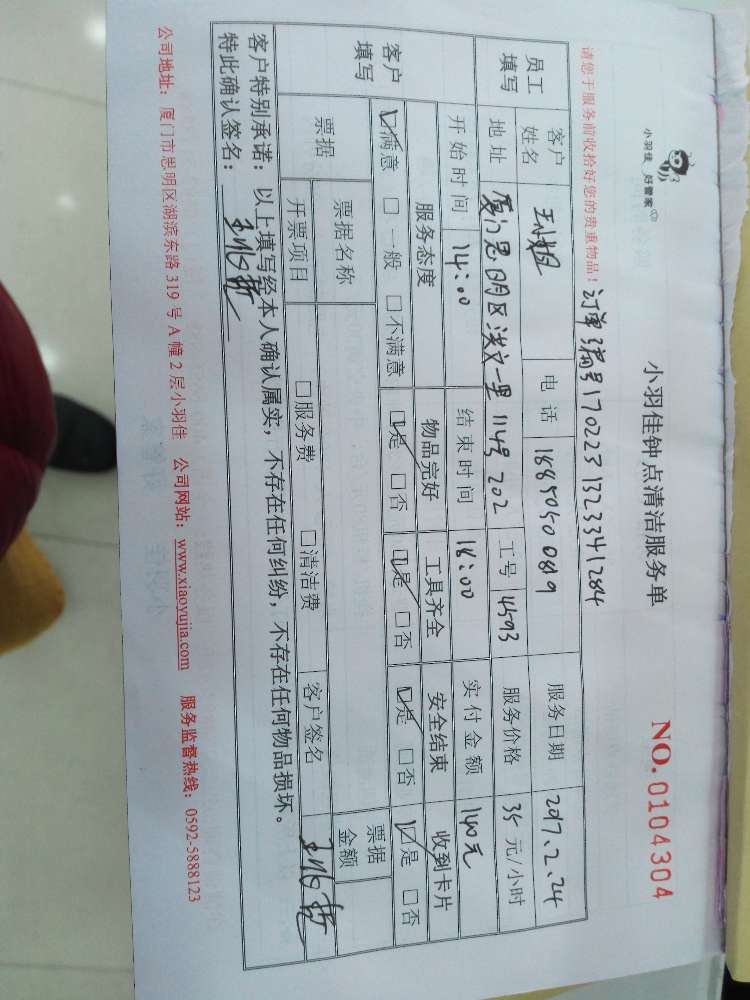 小羽佳 好管家
小羽佳钟点清洁服务单
NO.0104304
请您于服务前收拾好您的贵重物品！
订单编号1702231323341284
员工填写
客户姓名 王小姐 电话 18850500819 服务日期 2017.2.24
地址 厦门思明区 一里114号202 工号 4593 服务价格 35元/小时
开始时间 14:00 结束时间 18:00 实付金额 140元
客户填写
服务态度 物品完好 工具齐全 安全结束 收到卡片
☑满意 □一般 □不满意 ☑是 □否 ☑是 □否 ☑是 □否 ☑是 □否
票据 票据名称 票据金额
开票项目 □服务费 □清洁费 客户签名
客户特别承诺：以上填写经本人确认属实，不存在任何纠纷，不存在任何物品损坏。
特此确认签名：
公司地址：厦门市思明区湖滨东路319号A幢2层小羽佳 公司网站：www.xiaoyujia.com 服务监督热线：0592-5888123